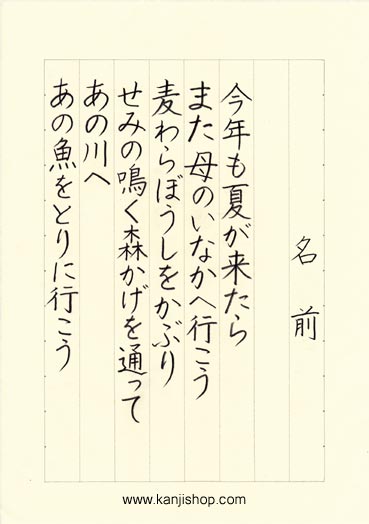 名前
今年も夏が来たら
また母のいなかへ行こう
麦わらぼうしをかぶり
せみの鳴く森かげを通って
あの川へ
あの魚をとりに行こう
www.kanjishop.com